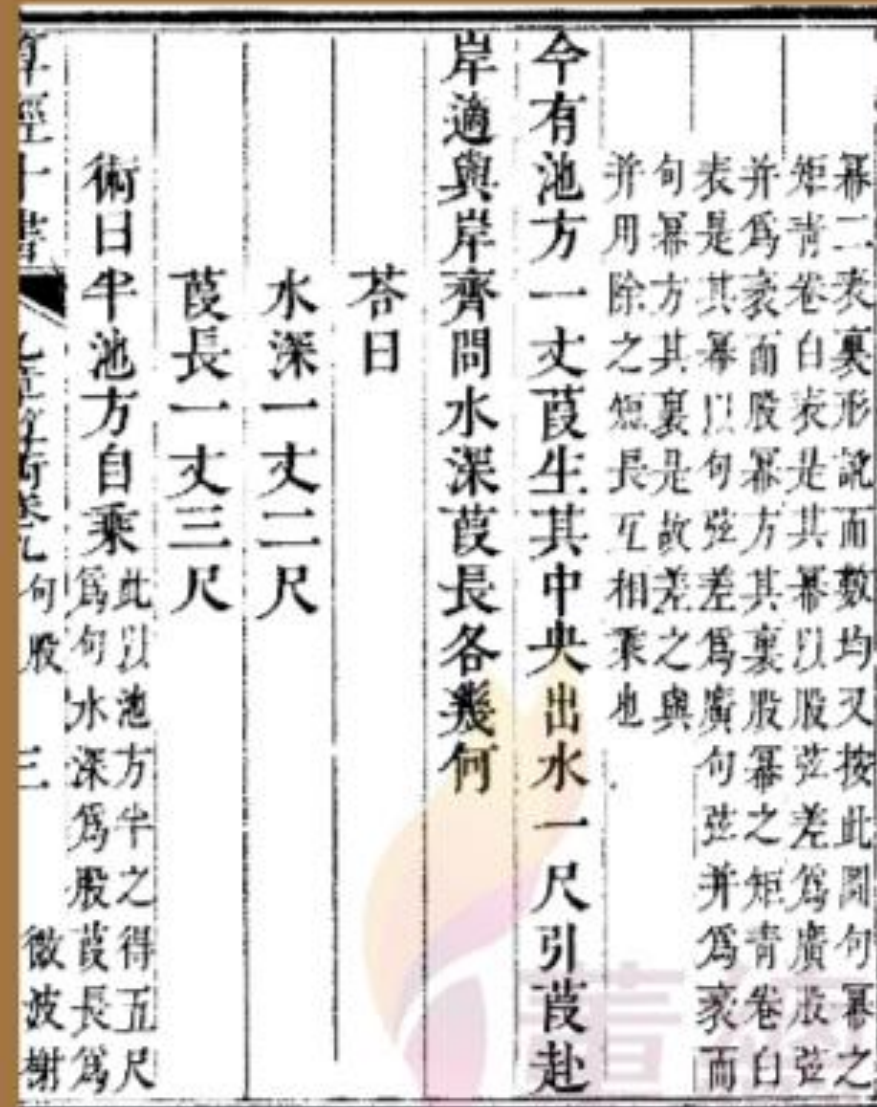 冪二表裏形詭而數均又按此圖句冪之
矩青卷白表是其冪以股弦差爲廣股弦
并爲袤而股冪方其裏股冪之矩青卷白
表是其冪以句弦差爲廣句弦并爲袤而
句冪方其裏是故差之與
并用除之短長互相乘也
今有池方一丈葭生其中央出水一尺引葭赴
岸適與岸齊問水深葭長各幾何
荅曰
水深一丈二尺
葭長一丈三尺
術曰半池方自乘
此以池方半之得五尺
爲句水深爲股葭長爲
算經十書 九章算術卷九 句股 三 微波榭